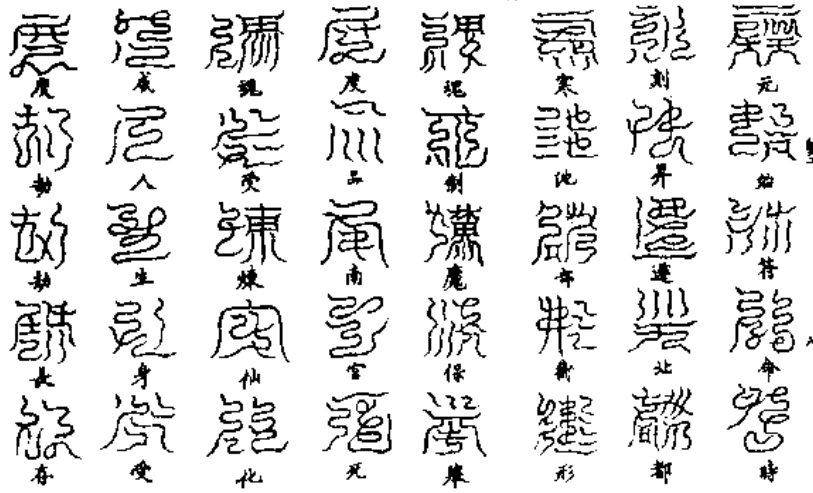 元始符命時
刻昇遷北都
寒池部衛形
魂制魔保舉
度品南宮死
魂受煉仙化
成人生身受
度劫劫長存